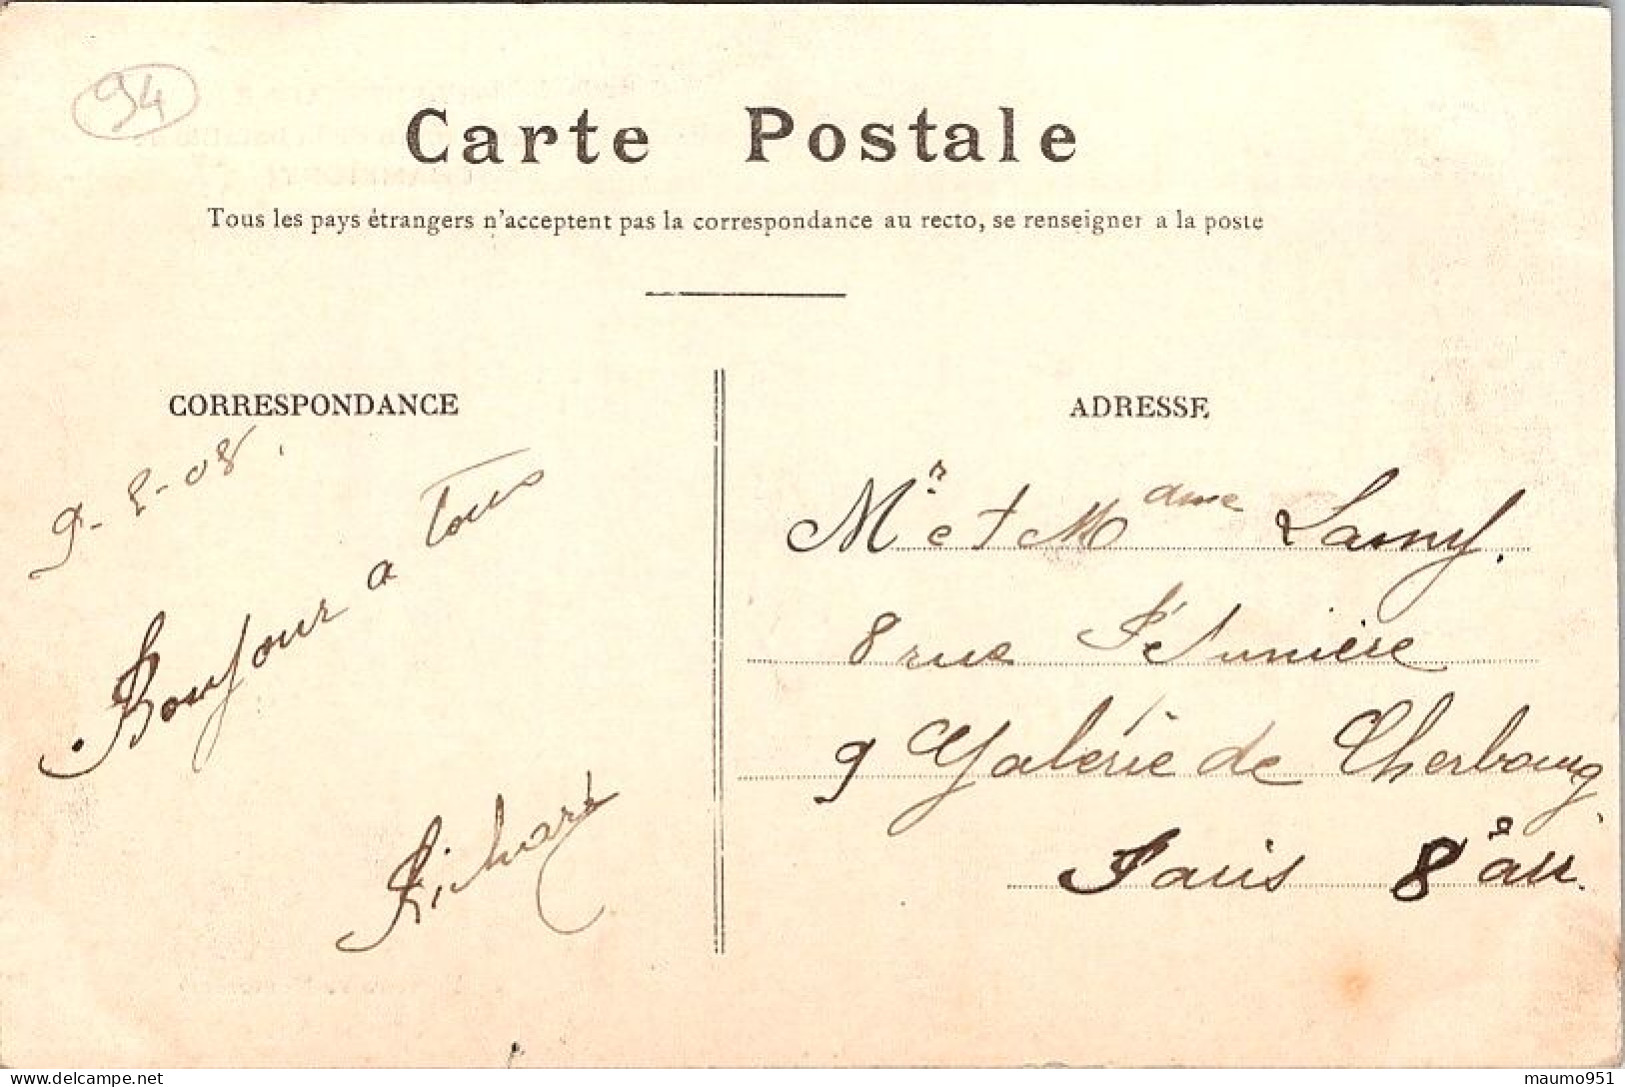 94
Carte Postale
Tous les pays étrangers n'acceptent pas la correspondance au recto, se renseigner a la poste
CORRESPONDANCE
9-2-08.
Bonjour a tous
Richard
ADRESSE
Mr et Mdme Lamy.
8 rue Pépinière
9 Galérie de Cherbourg,
Paris 8e arr.
maumo951